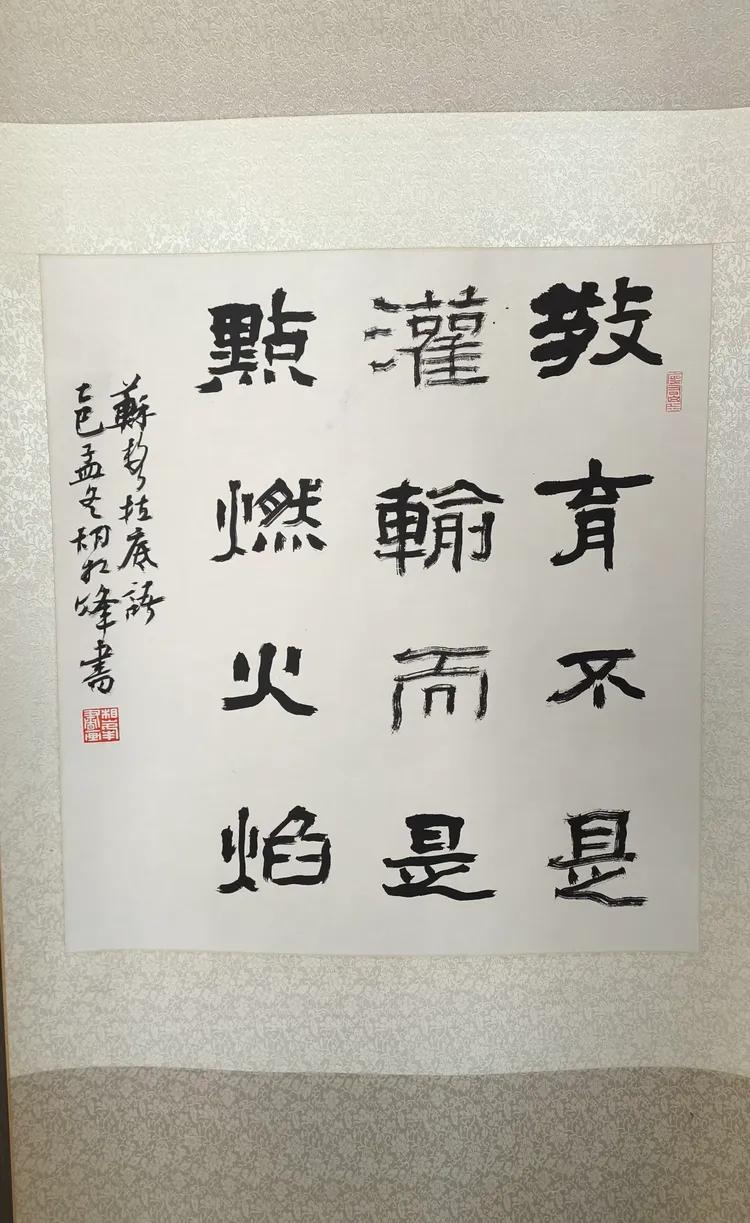 教育不是
灌輸而是
點燃火焰
蘇格拉底語
乙巳孟冬胡相峰書